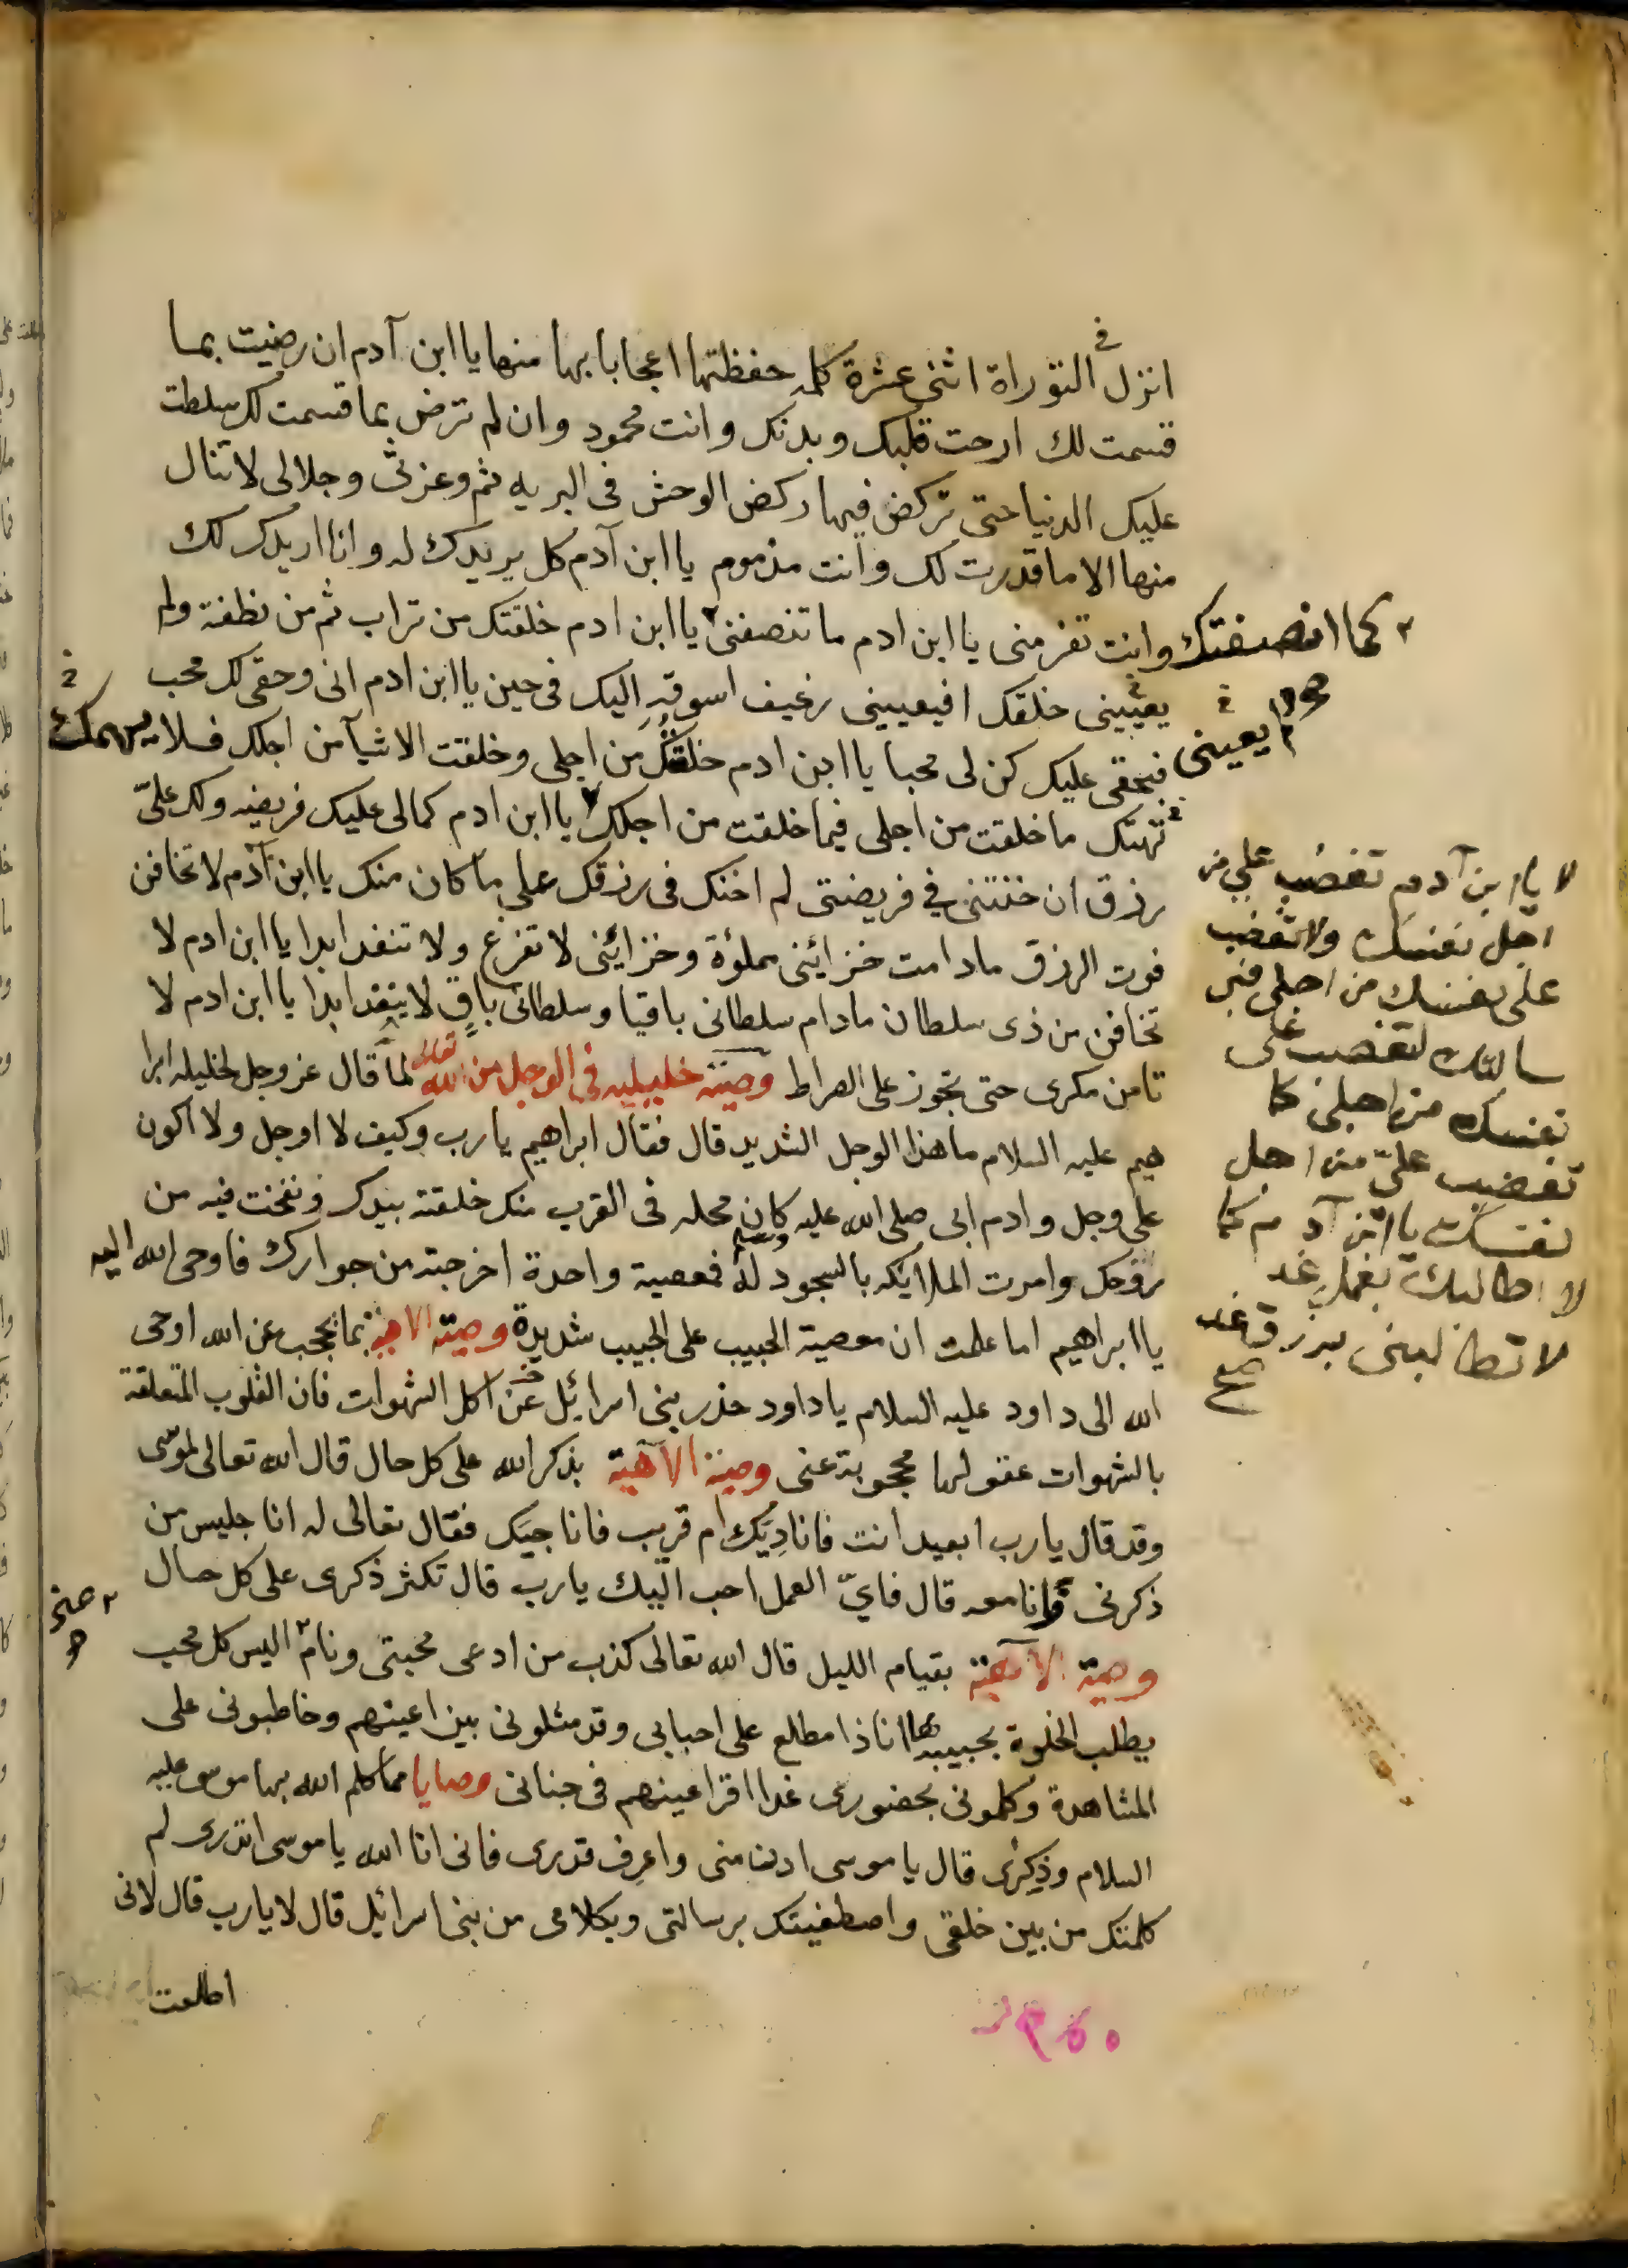 انزل في التوراة اثنى عشرة كلمه حفظتها اعجابا بها منها يا ابن آدم ان رضيت بما
قسمت لك ارحت قلبك وبدنك وانت محمود وان لم ترض بما قسمت لك سلطت
عليك الدنيا حتى تركض فيها ركض الوحش في البريه ثم وعزتى وجلالى لا تنال
منها الا ما قدرت لك وانت مذموم يا ابن آدم كل يريدك له وانا اريدك لك
وانت تفر منى يا ابن ادم ما تنصفنى يا ابن ادم خلقتك من تراب ثم من نطفة ولم
كما انصفتك
يعييني خلقك افيعييني رغيف اسوقه اليك في حين يا ابن ادم انى وحقى لك محب
يعيني
فبحقى عليك كن لى محبا يا ابن ادم خلقتك من اجلى وخلقت الاشيآ من اجلك فلا
يهمك
تهتك ما خلقت من اجلى فيما خلقت من اجلك يا ابن ادم كما لى عليك فريضه ولك علىّ
رزق ان خنتنى في فريضتى لم اخنك في رزقك على ما كان منك يا ابن آدم لا تخافن
فوت الرزق مادامت خزائنى مملؤة وخزائنى لا تفرغ ولا تنفد ابدا يا ابن ادم لا
تخافن من ذى سلطان مادام سلطانى باقيا وسلطانى باقٍ لا ينفد ابدا يا ابن ادم لا
تامن مكرى حتى تجوز على الصراط وصيته خليليه في الوجل من الله تعالى لما قال عز وجل لخليله ابرا
هيم عليه السلام ما هذا الوجل الشديد قال فقال ابراهيم يا رب وكيف لا اوجل ولا اكون
على وجل وادم ابى صلى الله عليه وسلم كان محله في القرب منك خلقته بيدك ونفخت فيه من
روحك وامرت الملائكه بالسجود له فمعصية واحدة اخرجته من جوارك فاوحى الله اليه
يا ابراهيم اما علمت ان معصية الحبيب على الحبيب شديدة وصيته الاهية بما يحجب عن الله اوحى
الله الى داود عليه السلام يا داود حذر بنى اسرائيل عن اكل الشهوات فان القلوب المتعلقة
بالشهوات عقولها محجوبة عنى وصية الآهية بذكر الله على كل حال قال الله تعالى لموسى
وقد قال يا رب ابعيد انت فاناديك ام قريب فاناجيك فقال تعالى له انا جليس من
ذكرنى وانا معه قال فايّ العمل احب اليك يا رب قال تكثر ذكرى على كل حال
وصية الآهية بقيام الليل قال الله تعالى كذب من ادعى محبتى ونام اليس كل محب
يطلب الخلوة بحبيبه ها انا ذا مطلع على احبابى وقد مثلونى بين اعينهم وخاطبونى على
المشاهدة وكلمونى بحضورى غدا اقر اعينهم في جنانى وصايا مما كلم الله بها موسى عليه
السلام وذِكرى قال يا موسى ادن منى واعرف قدرى فانى انا الله يا موسى اتدرى لم
كلمتك من بين خلقى واصطفيتك برسالتى وبكلامى من بنى اسرائيل قال لا يا رب قال لانى
اطلعت
لا يا ابن آدم تغضب علي من
اجل نفسك ولا تغضب
على نفسك من اجلى
لتغضب على
نفسك من اجلى كما
تغضب علىّ من اجل
نفسك يا ابن آدم كما
لا اطالبك بعمل غد
لا تطالبنى برزق غد
صح